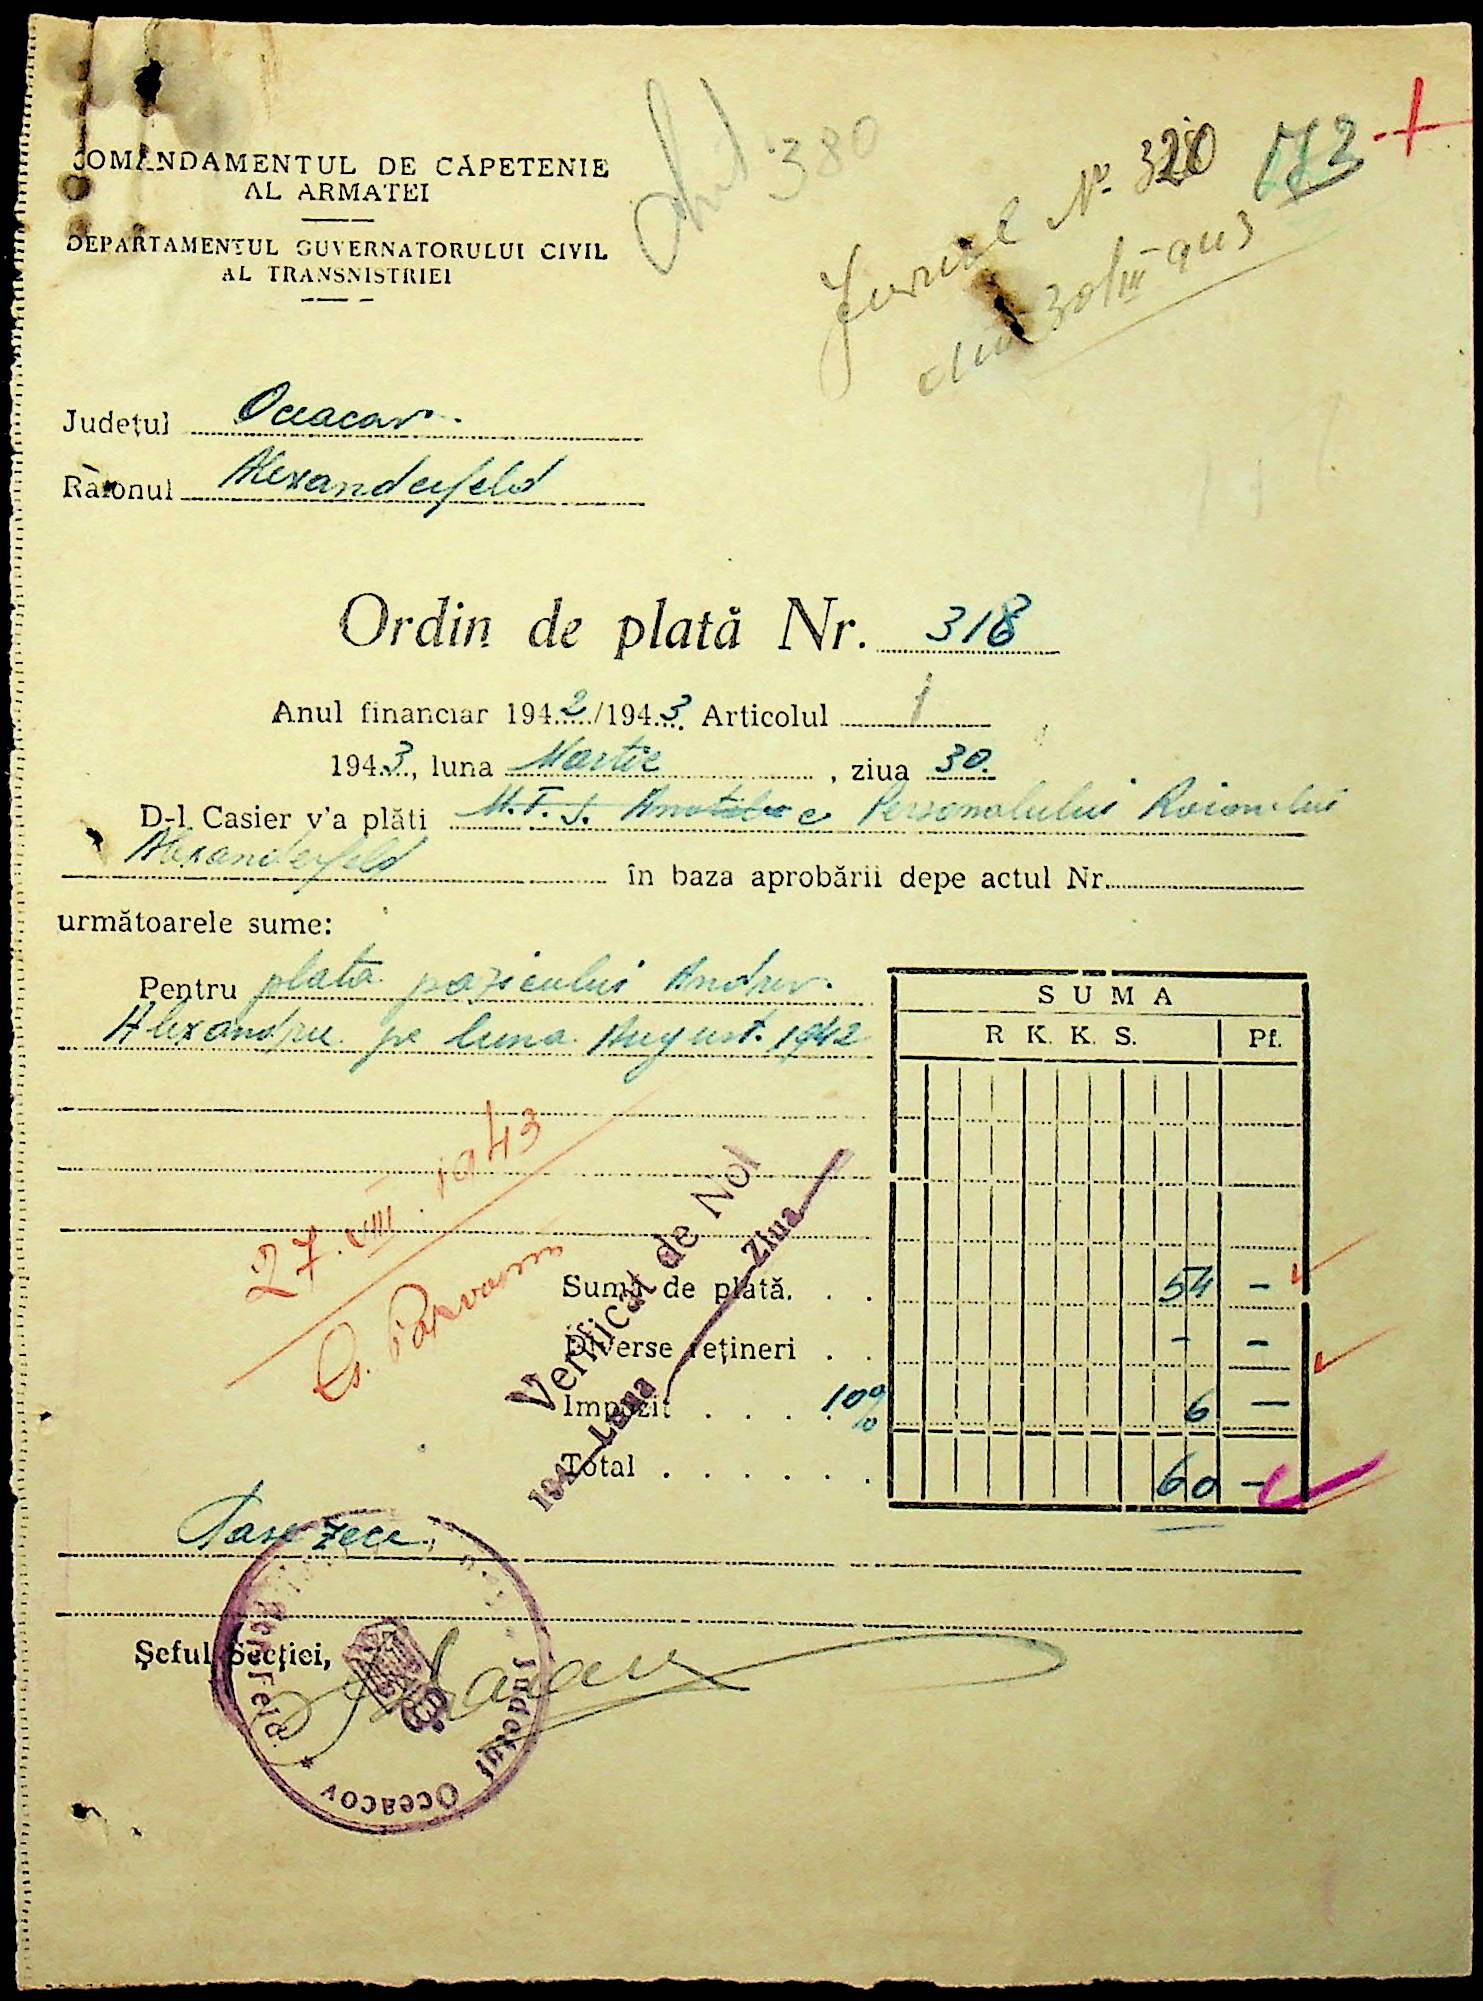 COMANDAMENTUL DE CAPETENIE
AL ARMATEI
DEPARTAMENTUL GUVERNATORULUI CIVIL
AL TRANSNISTRIEI
380
Jurnal No. 320
173
din 30/III 943
Județul Oceacov.
Raionul Alexanderfeld
Ordin de plată Nr. 318
Anul financiar 1942/1943 Articolul 1
1943, luna Martie, ziua 30.
D-l Casier v'a plăti M.T.S. Personalului Raionului
Alexanderfeld în baza aprobării depe actul Nr.
următoarele sume:
Pentru plata paznicului Andrev.
Alexandru pe luna August. 1942
SUMA
R. K. K. S. Pf.
27.VIII.1943
Verificat de Noi
194 Luna Ziua
Suma de plată. . . 54 —
Diverse rețineri . . - —
Impozit . . . . 10% 6 —
Total . . . . . . 60 —
Șase zece
Șeful Secției,
Județul Oceacov *